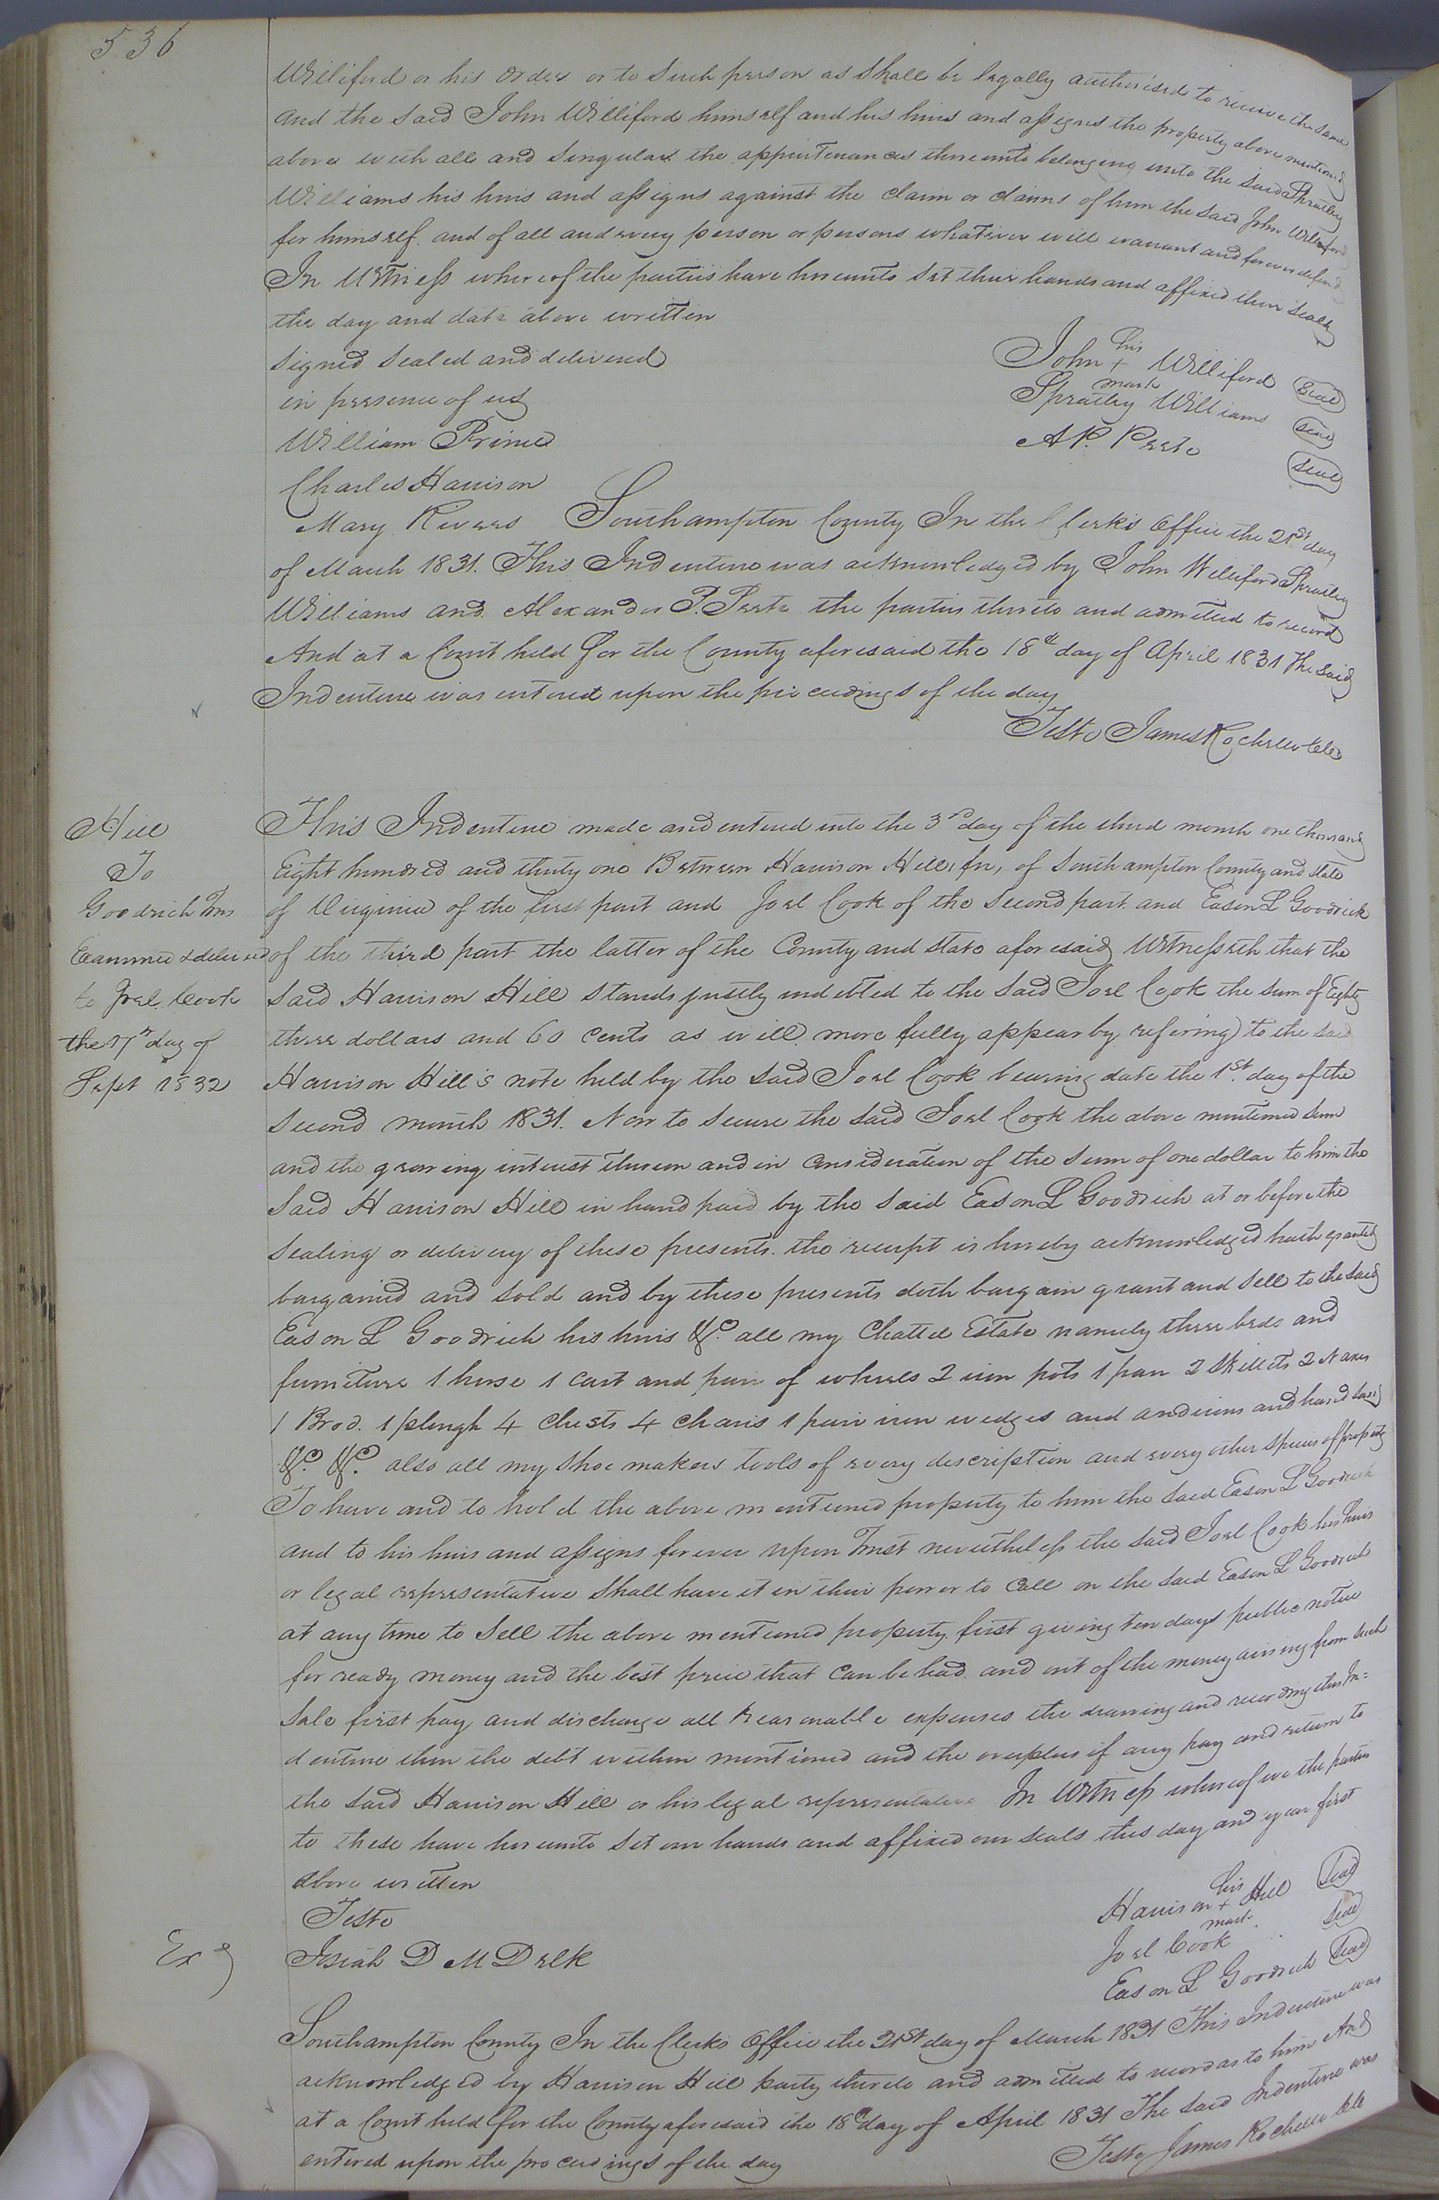 536
Williford or his order or to such person as shall be legally authorised to receive the same
And the said John Williford himself and his heirs and assigns the property above mentioned
above with all and singular the appurtenances thereunto belonging unto the said Spratley
Williams his heirs and assigns against the claim or claims of him the said John Williford
for himself and of all and every person or persons whatever will warrant and forever defend
In Witness whereof the parties have hereunto set their hands and affixed their seals
the day and date above written
signed sealed and delivered
in presence of us
William Prince
Charles Harrison
Mary Rivers
John his + mark Williford Seal
Spratley Williams seal
A P. Peete seal
Southampton County In the Clerk's office the 21st day
of March 1831. This Indenture was acknowledged by John Williford Spratley
Williams and Alexander P. Peete the parties thereto and admitted to record
And at a Court held for the County aforesaid the 18th day of April 1831 The said
Indenture was entered upon the proceedings of the day
Teste James Rochelle Clk
Hill
To
Goodrich Trus
Examined & delivered
to Joel Cook
the 17th day of
Sept 1832
This Indenture made and entered into the 3rd day of the third month one thousand
Eight hundred and thirty one Between Harrison Hill, fn, of Southampton County and state
of Virginia of the first part and Joel Cook of the second part and Eason L Goodrich
of the third part the latter of the County and state aforesaid Witnesseth that the
said Harrison Hill stands justly indebted to the said Joel Cook the sum of Eighty
three dollars and 60 cents as will more fully appear by refering to the said
Harrison Hill's note held by the said Joel Cook bearing date the 1st. day of the
second month 1831. Now to secure the said Joel Cook the above mentioned sum
and the growing interest thereon and in consideration of the sum of one dollar to him the
said Harrison Hill in hand paid by the said Eason L Goodrich at or before the
sealing or delivery of these presents. the receipt is hereby acknowledged hath granted
bargained and sold and by these presents doth bargain grant and sell to the said
Eason L Goodrich his heirs &c. all my Chattel Estate namely three beds and
furniture 1 horse 1 cart and pair of wheels 2 iron pots 1 pan 2 skillets 2 N axes
1 Brod. 1 plough 4 Chests 4 chairs 1 pair iron wedges and andirons and hand saw
&c. &c. also all my shoe makers tools of every description and every other species of property
To have and to hold the above mentioned property to him the said Eason L Goodrich
and to his heirs and assigns forever upon Trust nevertheless the said Joel Cook his heirs
or legal representative shall have it in their power to call on the said Eason L Goodrich
at any time to sell the above mentioned property. first giving ten days public notice
for ready money and the best price that can be had. and out of the money arising from such
sale first pay and discharge all reasonable expenses the drawing and recording this In=
denture then the debt within mentioned and the overplus if any pay and return to
the said Harrison Hill or his legal representative In Witness whereof we the parties
to these have hereunto set our hands and affixed our seals this day and year first
above written
Teste
Josiah D M Delk
Harrison his + mark Hill Seal
Joel Cook Seal
Eason L Goodrich Seal
Exd
Southampton County In the Clerks Office the 21st day of March 1831 This Indenture was
acknowledged by Harrison Hill party thereto and admitted to record as to him And
at a Court held for the County aforesaid the 18th day of April 1831 The said Indenture was
entered upon the proceedings of the day
Teste James Rochelle Clk